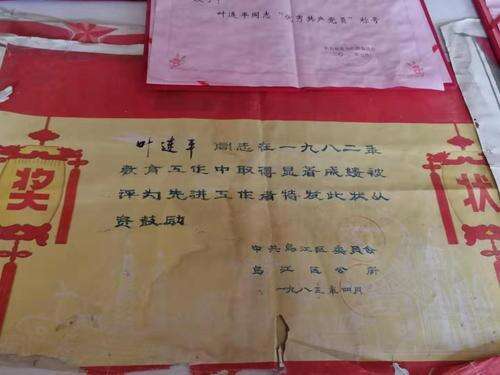 叶连平同志“优秀共产党员”称号
奖
状
叶连平 同志在一九八二年
教育工作中取得显著成绩被
评为先进工作者特发此状以
资鼓励
中共乌江区委员会
乌江区公所
一九八三年四月